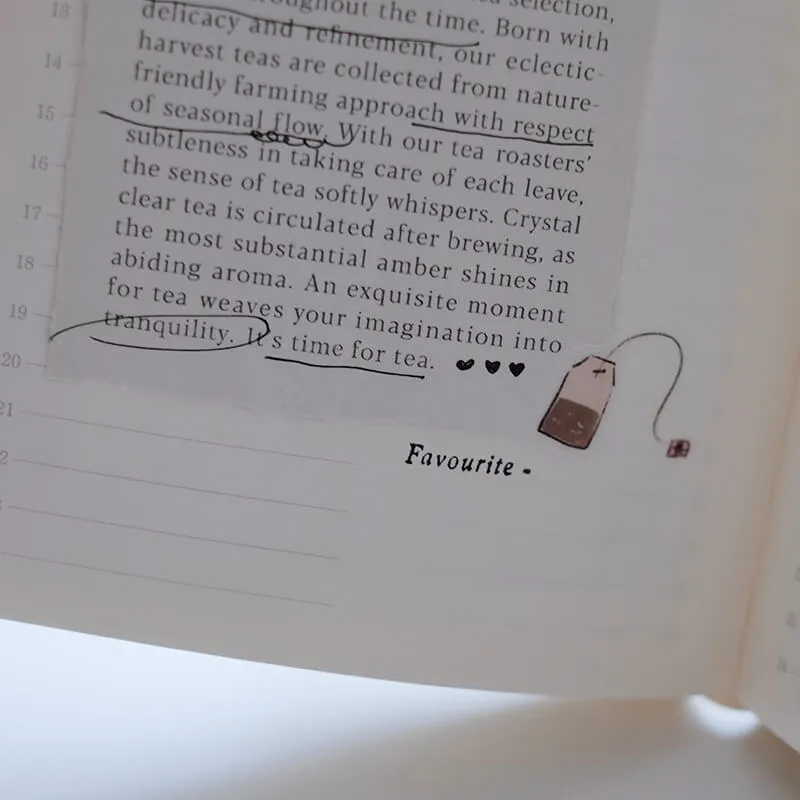 13
selection,
throughout the time. Born with
delicacy and refinement, our eclectic-
14
harvest teas are collected from nature-
friendly farming approach with respect
15
of seasonal flow. With our tea roasters'
subtleness in taking care of each leave,
16
the sense of tea softly whispers. Crystal
17
clear tea is circulated after brewing, as
the most substantial amber shines in
18
abiding aroma. An exquisite moment
for tea weaves your imagination into
19
tranquility. It's time for tea.
20
21
Favourite -